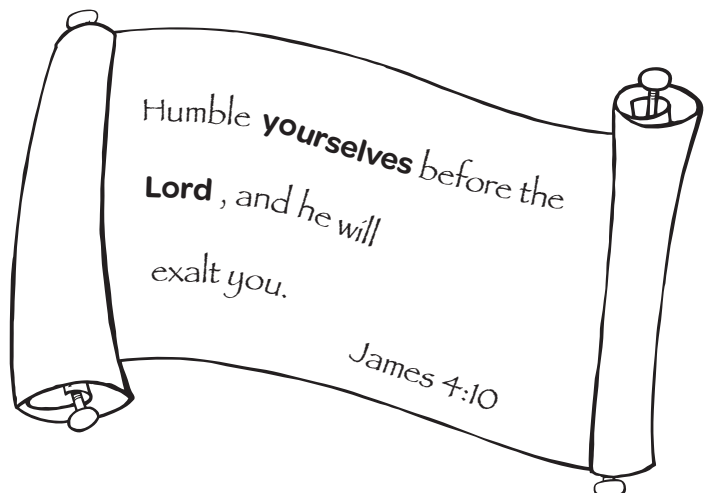 Humble yourselves before the
Lord , and he will
exalt you.
James 4:10